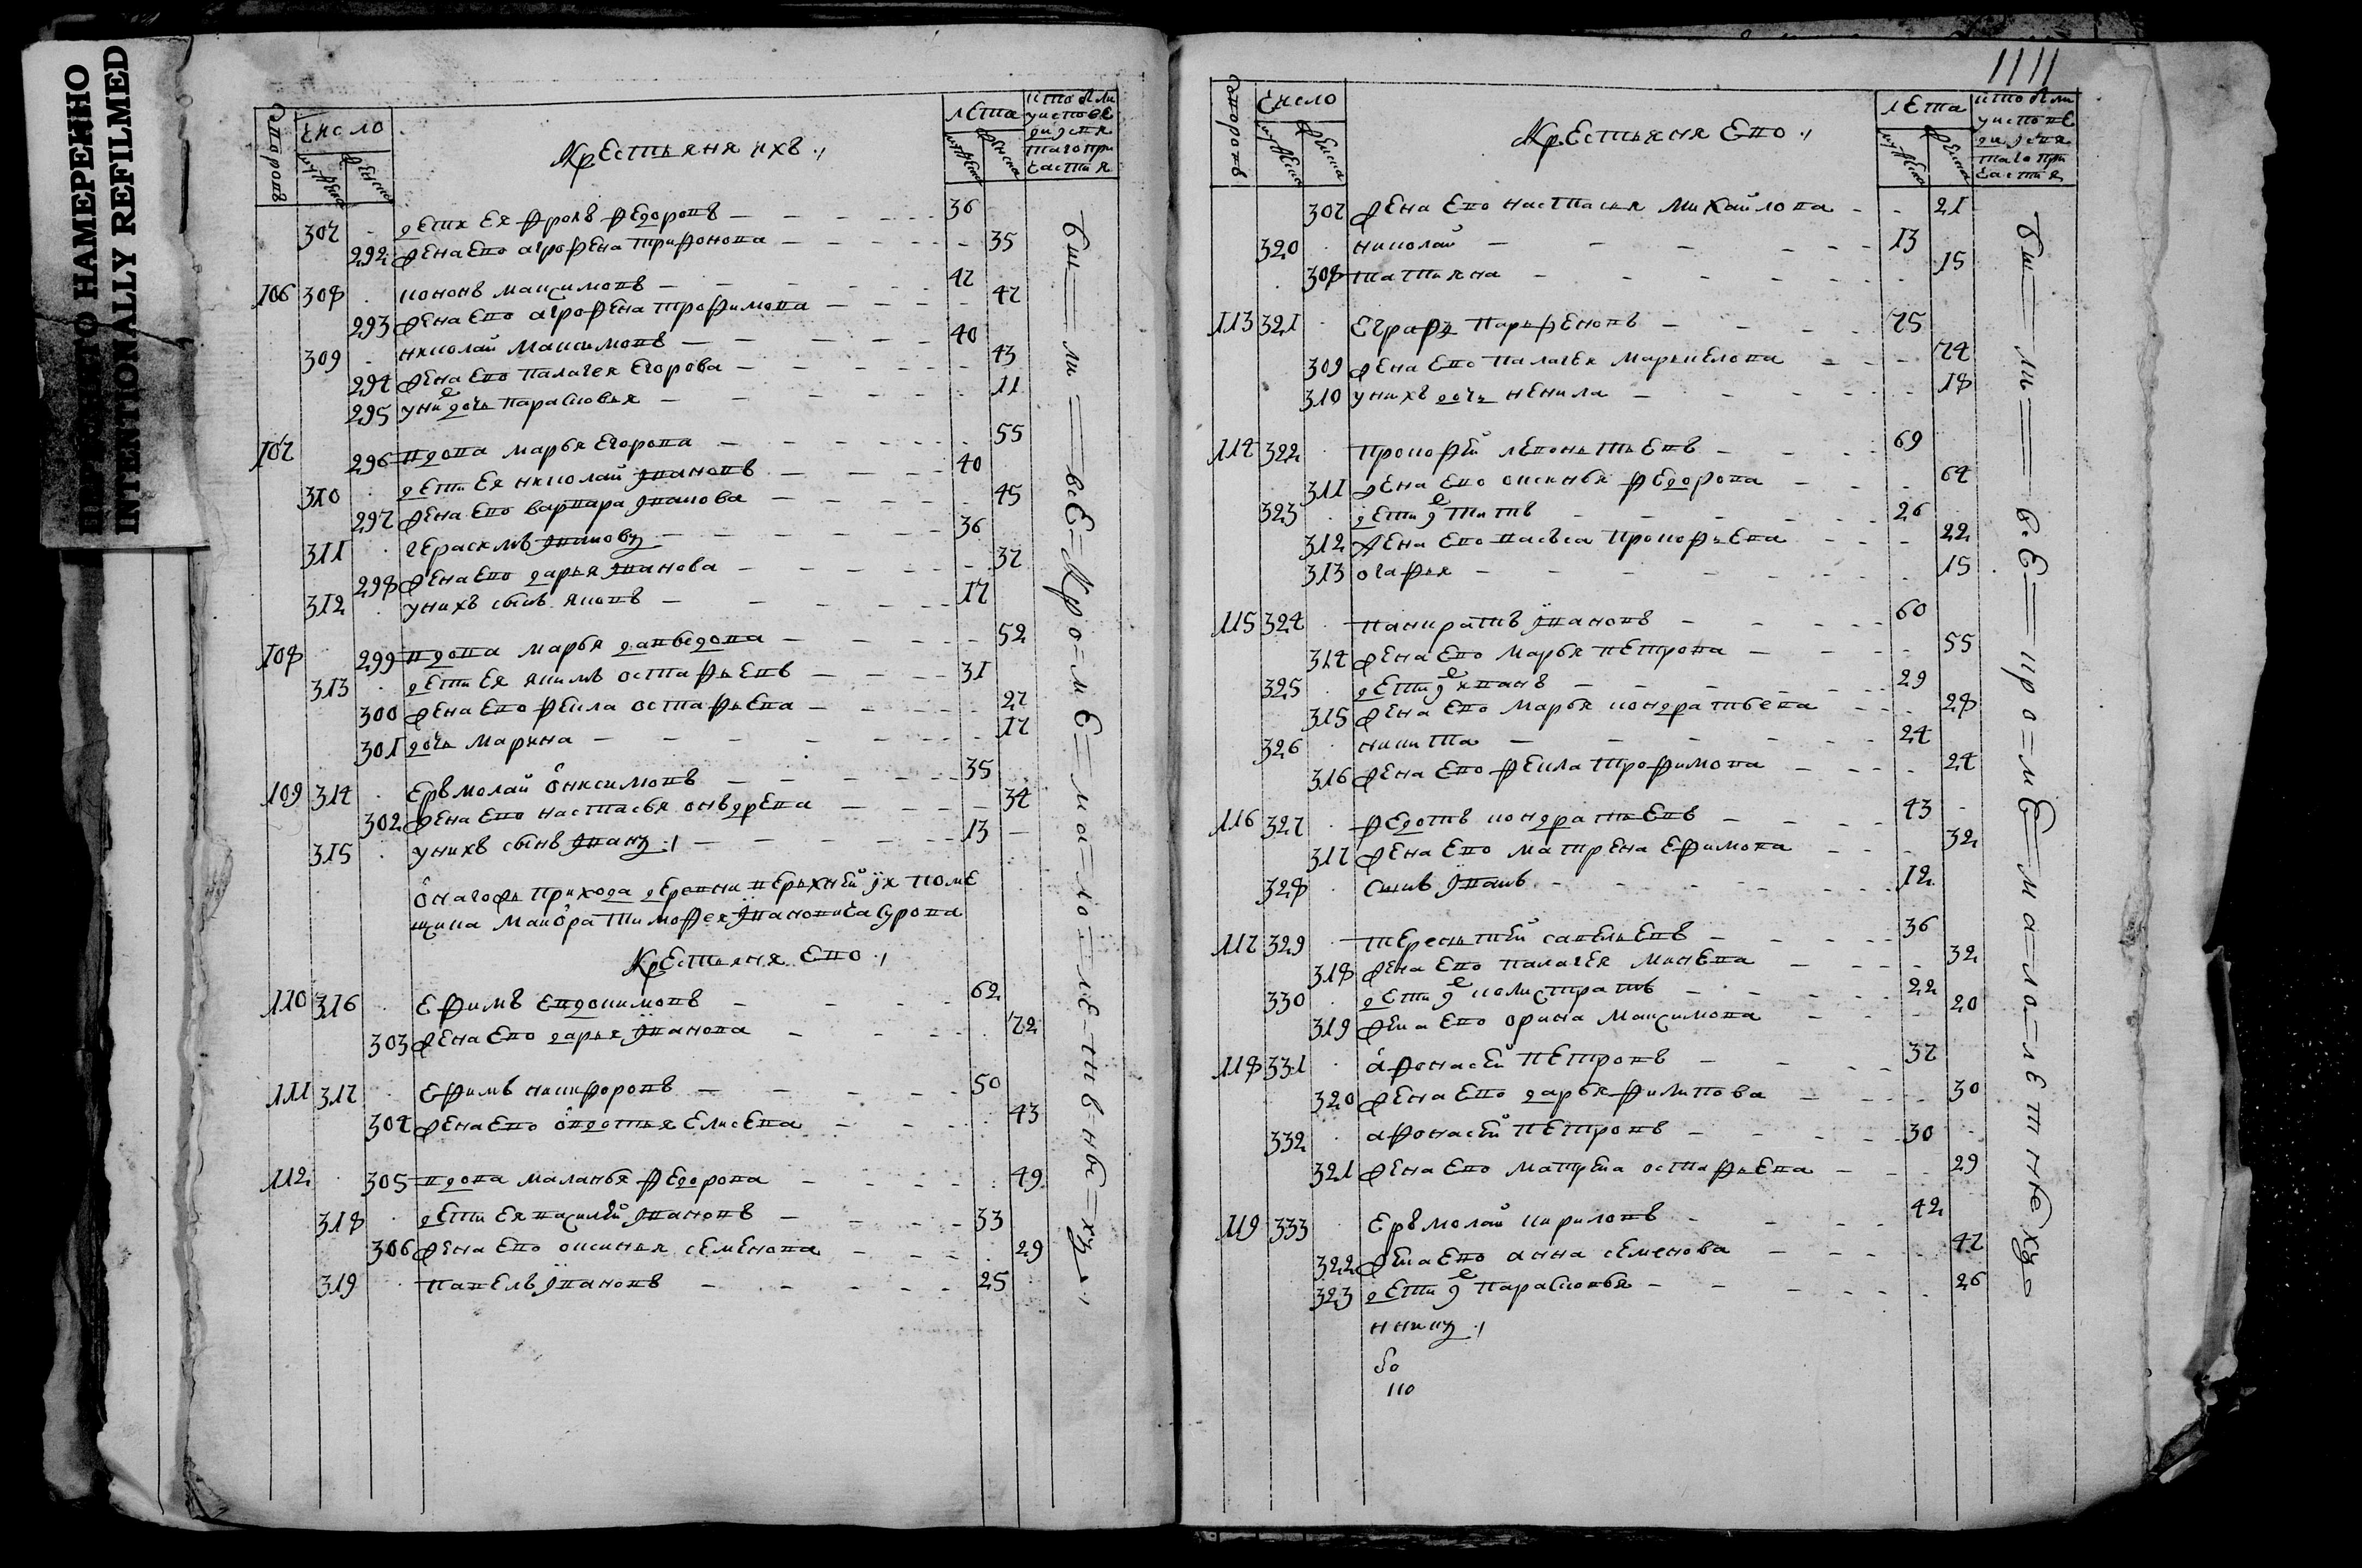 НЕРЕДКО НАМЕРЕННО
INTENTIONALLY REFILMED
дворовъ
число
мужеска
женска
Крестьяня ихъ
лета
мужеска
женска
кто были
у исповеди
и святаго при
частия
307 дети ея фролъ федоровъ 36
292 жена ево агрофена трифонова 35
106 308 кононъ максимовъ 47
293 жена ево агрофена трофимова 47
309 николай максимовъ 40
294 жена ево палагея егорова 43
295 у них дочь парасковья 11
107 296 вдова марья егорова 55
310 дети ея николай ивановъ 40
297 жена ево варвара иванова 45
311 герасимъ ивановъ 36
298 жена ево дарья иванова 37
312 у нихъ сынъ яковъ 17
108 299 вдова марья давыдова 52
313 дети ея якимъ остафьевъ 31
300 жена ево фекла остафьева 27
301 дочь марина 17
109 314 еръмолай онисимовъ 35
302 жена ево настасья онъдрева 34
315 у нихъ сынъ иванъ 13
оного жъ прихода деревни верхней ук поме
щика маиора тимофея ивановича сурова
Крестьяня ево
110 316 ефимъ евдокимовъ 62
303 жена ево дарья иванова 72
111 317 ефимъ никифоровъ 50
304 жена ево овдотья елисева 43
112 305 вдова маланья федорова 49
318 дети ея василей ивановъ 33
306 жена ево оксинья семенова 29
319 павелъ ивановъ 25
бы=ли=все=кро=ме=ма=ло=ле-тъ-ны=хъ
1111
дворовъ
число
мужеска
женска
Крестьяня ево
лета
мужеска
женска
кто были
у испове
ди и святя
таго при
частия
307 жена ево настасья михайлова 21
320 николай 13
308 татияна 15
113 321 еграфъ парьфеновъ 75
309 жена ево палагея маркелова 74
310 у нихъ дочь ненила 18
114 322 прокофей левоньтьевъ 69
311 жена ево оксинья федорова 64
323 дети ево титъ 26
312 жена ево васьса прокофьева 22
313 огафья 15
115 324 панкратъ ивановъ 60
314 жена ево марья петрова 55
325 дети ево иванъ 29
315 жена ево марья кондратьева 28
326 никита 24
316 жена ево фекла трофимова 24
116 327 федотъ кондратьевъ 43
317 жена ево матрена ефимова 32
328 сынъ иванъ 12
117 329 терентей савельевъ 36
318 жена ево палагея минева 32
330 дети ево колистратъ 22
319 жена ево орина максимова 20
118 331 афонасей петровъ 37
320 жена ево дарья филипова 30
332 афонасей петровъ 30
321 жена ево матрена остафьева 29
119 333 еръмолай кириловъ 42
322 жена ево анна семенова 47
323 дети ево парасковья 26
бы=ли=все=кро=ме=ма=ло=летныхъ
110